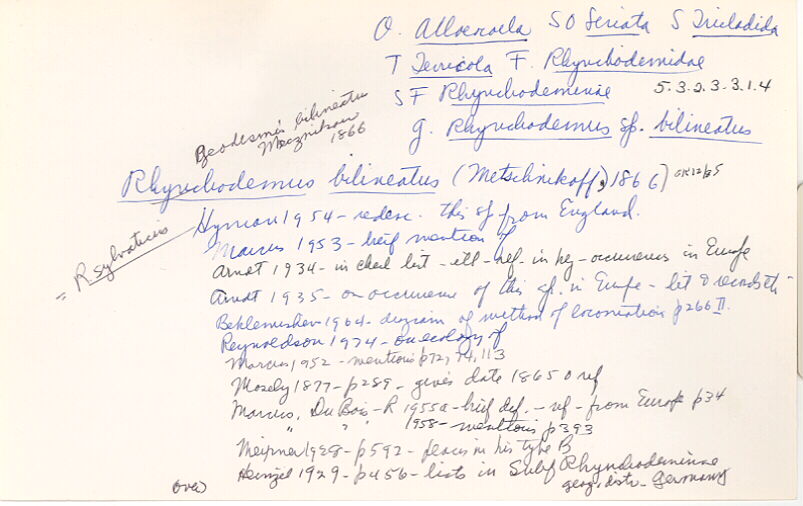 O. Alloeocoela SO Seriata S Tricladida
T Terricola F. Rhynchodemidae
SF Rhynchodeminae 5.3.2.3.3.1.4
g. Rhynchodemus sp. bilineatus
Geodesmus bilineatus
Mecznikow
1866
Rhynchodemus bilineatus (Metschnikoff, 1866) GR 12/85
= R sylvaticus
Hyman 1954 - redesc. this sp from England.
Marcus 1953 - brief mention of
Arndt 1934 - in check list - - ref. in key - occurrences in Europe
Arndt 1935 - on occurrence of this sp. in Europe - lit & records
Beklemishev 1964 - diagram of method of locomotion p266 II.
Reynoldson 1974 - on ecology of
Marcus 1952 - mentions p72, 74, 113
Mosely 1877 - p289 - gives date 1865 & ref
Marcus, Du Bois-R 1955a - brief def. - ref - from Europe p34
" " " 1958 - mentions p393
Meixner 1928 - p592 - places in his type B
Heinzel 1929 - p456 - lists in Subf Rhynchodeminae
geog. distr. Germany
(over)